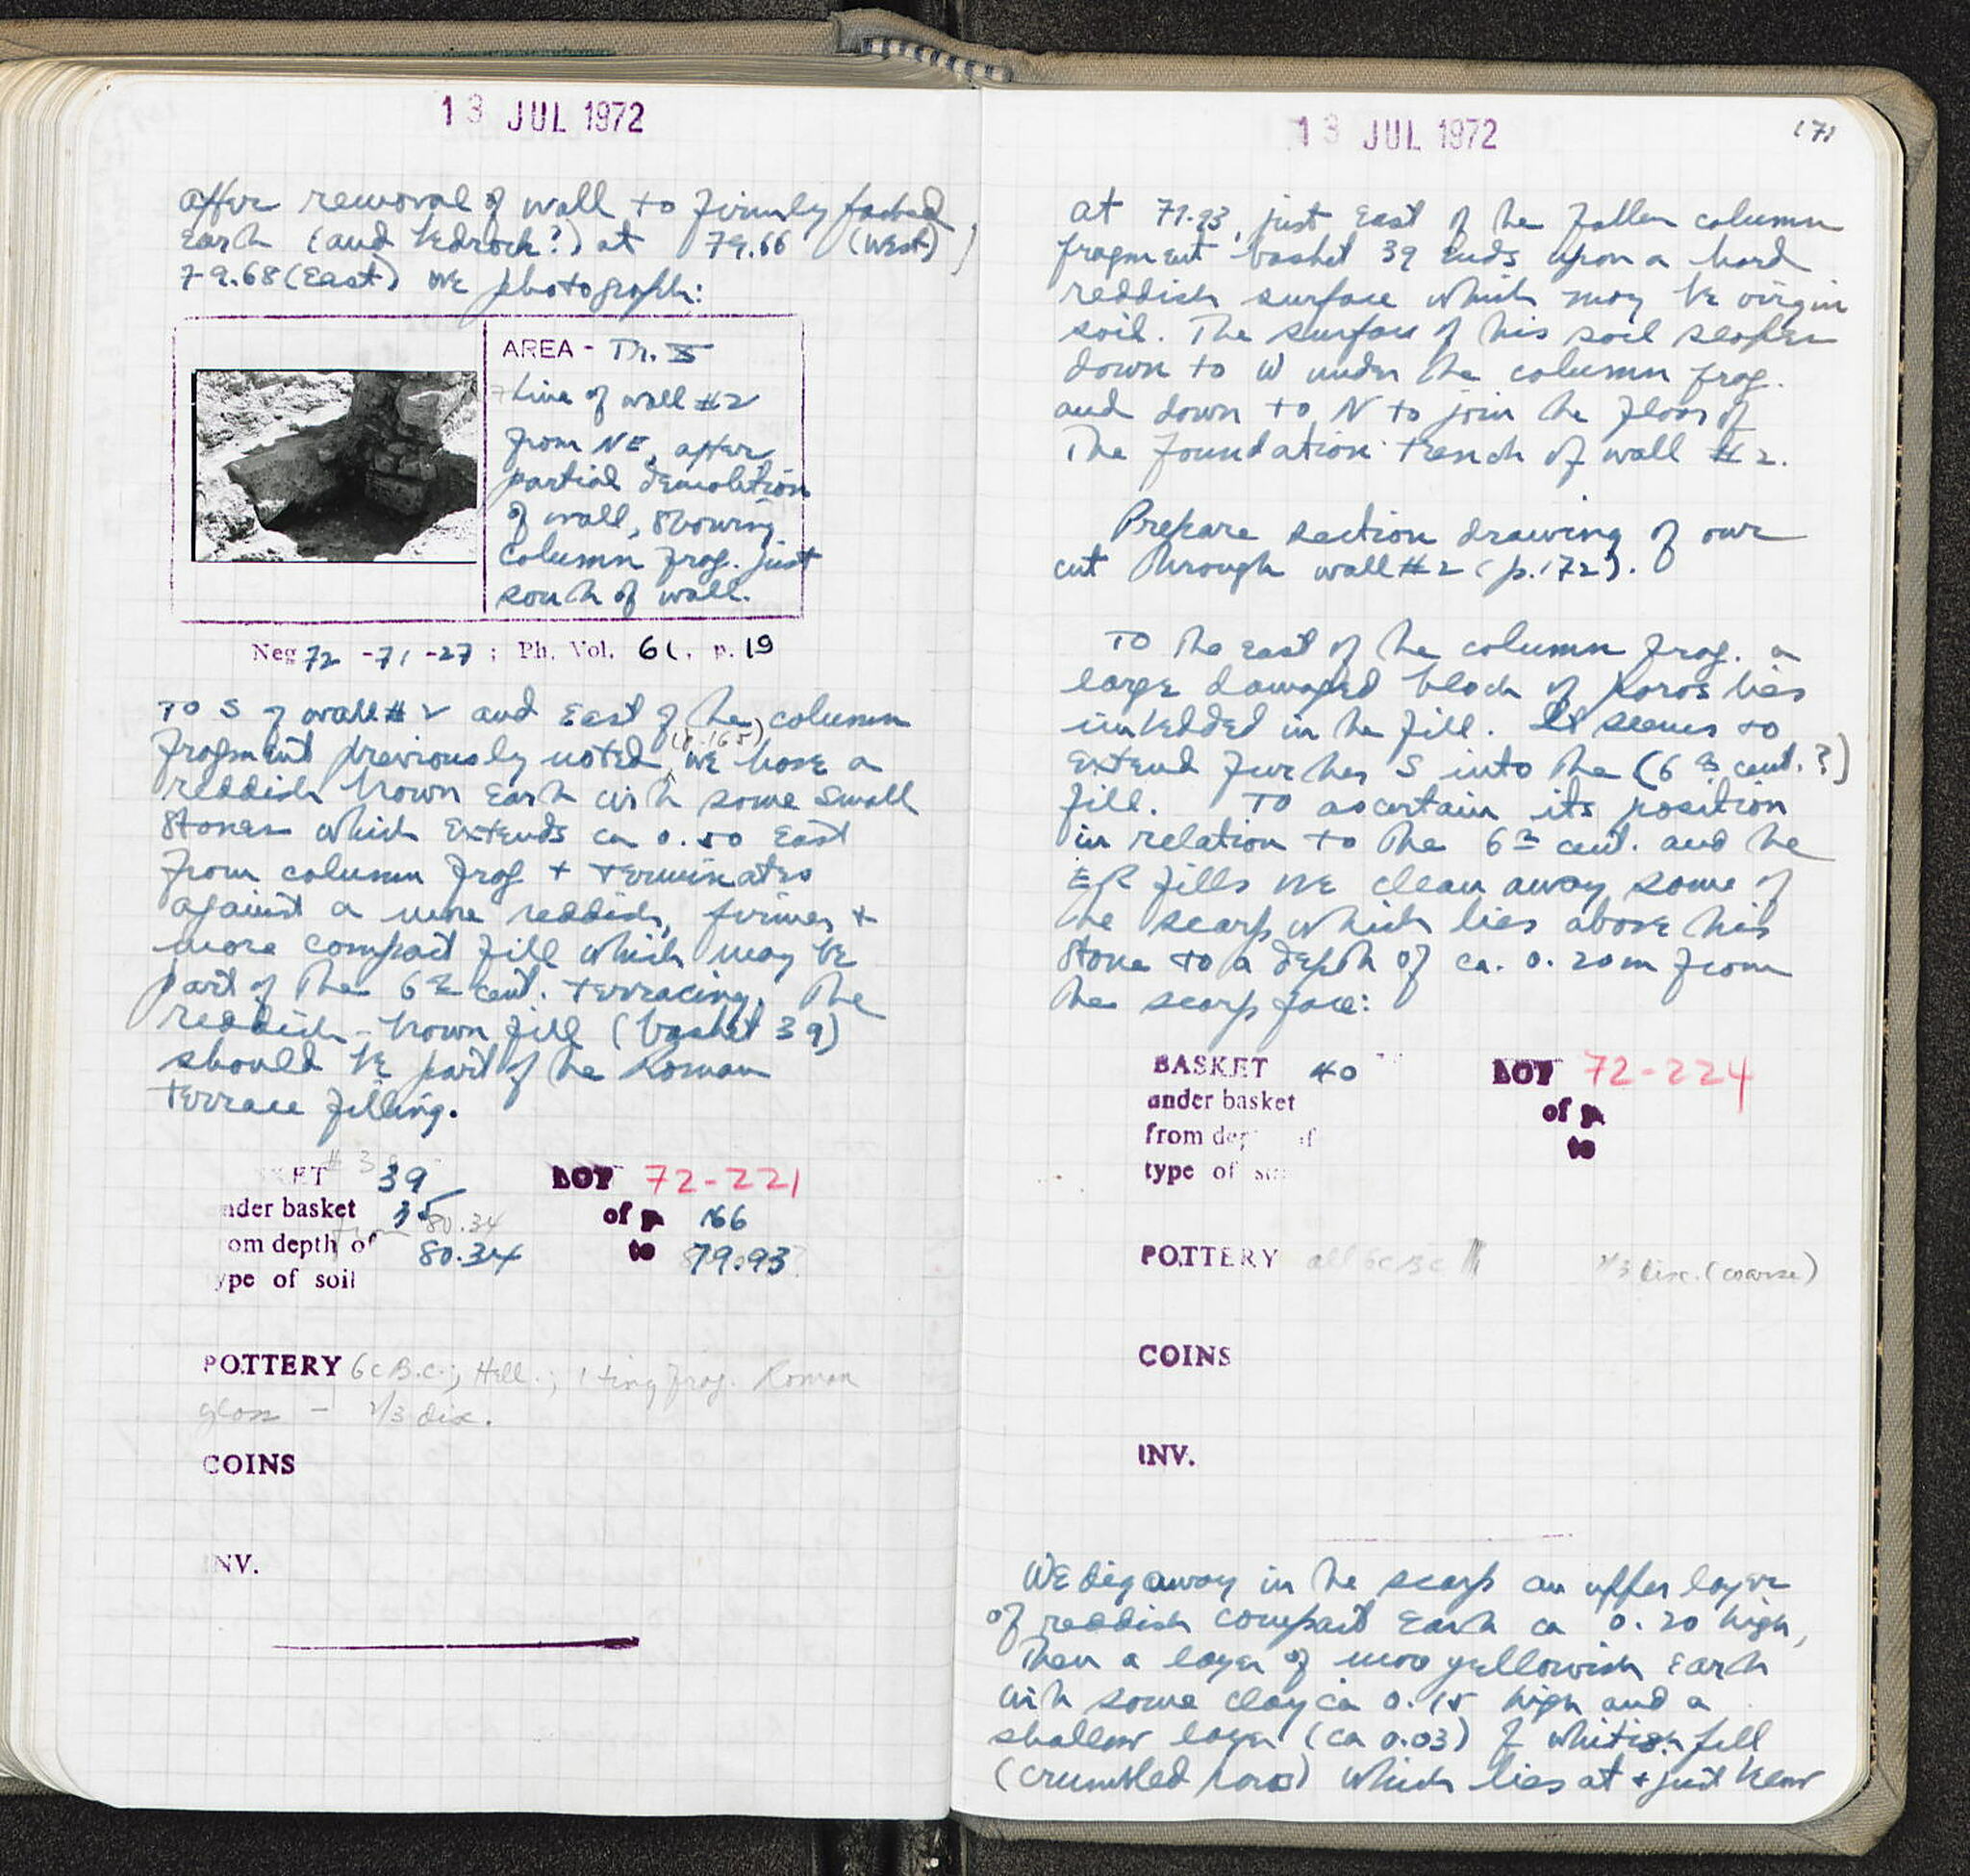 13 JUL 1972
after removal of wall to firmly packed
earth (and bedrock?) at 79.66 (West),
79.68 (East) we photograph:
AREA - Tr. X
Line of wall #2
from NE, after
partial demolition
of wall, showing
column frag. just
south of wall.
Neg 72 -71 -27 ; Ph. Vol. 61, p. 19
To S of wall #2 and East of the column
(p.165)
fragment previously noted, we have a
reddish brown earth with some small
stones which extends ca 0.50 East
from column frag + terminates
against a more reddish, firmer, +
more compact fill which may be
part of the 6th cent. terracing. The
reddish-brown fill (basket 39)
should be part of the Roman
terrace filling.
KET 39 LOT 72-221
nder basket 35 of p 166
from 80.34
om depth of 80.34 to 79.93
ype of soil
POTTERY 6c B.C.; Hell.; 1 tiny frag. Roman
glass - 2/3 disc.
COINS
INV.
13 JUL 1972
171
at 79.93, just East of the fallen column
fragment basket 39 ends upon a hard
reddish surface which may be virgin
soil. The surface of this soil slopes
down to W under the column frag.
and down to N to join the floor of
the foundation trench of wall #2.
Prepare section drawing of our
cut through wall #2 (p.172).
To the east of the column frag. a
large damaged block of poros lies
imbedded in the fill. It seems to
extend further S into the (6th cent.?)
fill. To ascertain its position
in relation to the 6th cent. and the
ER fills we clean away some of
the scarp which lies above this
stone to a depth of ca. 0.20m from
the scarp face:
BASKET 40 LOT 72-224
under basket of p
from dep of to
type of so
POTTERY all 6c BC 2/3 disc. (coarse)
COINS
INV.
We dig away in the scarp an upper layer
of reddish compact earth ca 0.20 high,
then a layer of more yellowish earth
with some clay ca 0.15 high and a
shallow layer (ca 0.03) of whitish fill
(crumbled poros) which lies at + just below